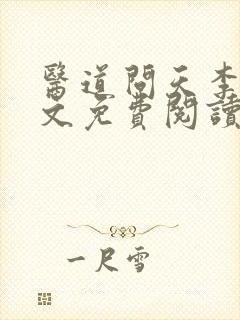 醫道問天李
文免費閱讀
一尺雪